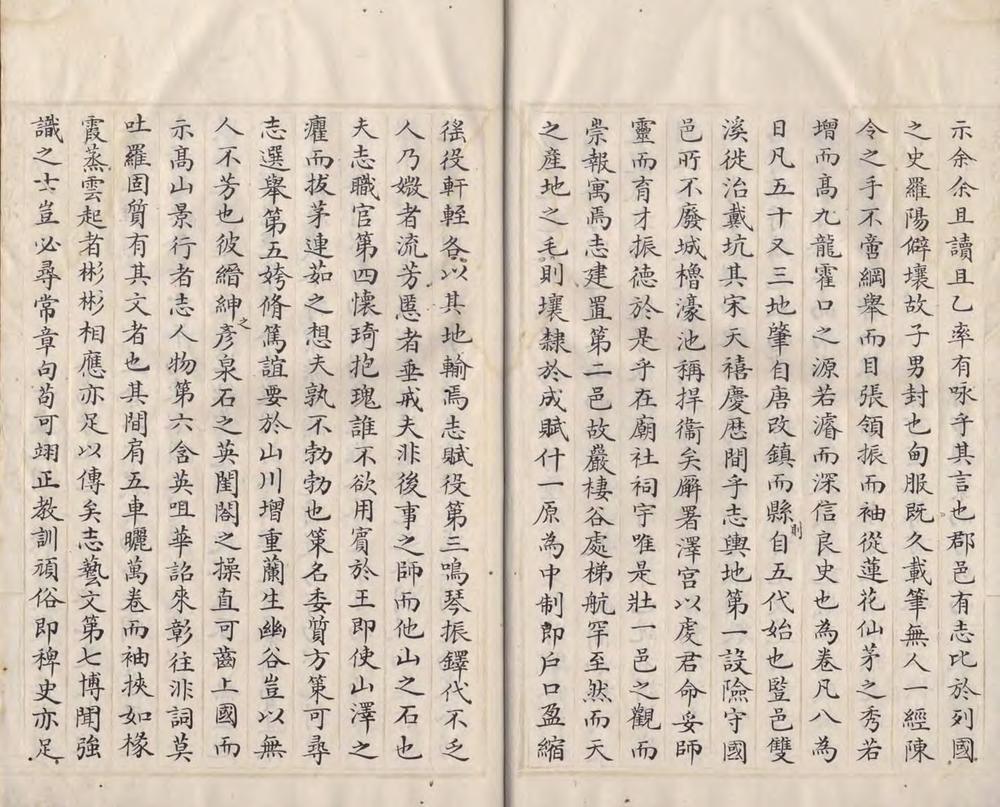 示余余且讀且乙率有咏乎其言也郡邑有志比於列國
之史羅陽僻壤故子男封也甸服既久載筆無人一經陳
令之手不啻綱舉而目張領振而袖從蓮花仙茅之秀若
增而高九龍霍口之源若濬而深信良史也為卷凡八為
日凡五十又三地肇自唐改鎮而縣則自五代始也暨邑雙
溪徙治戴坑其宋天禧慶曆間乎志輿地第一設險守國
邑所不廢城櫓濠池稱捍衞矣廨署澤宮以處君命妥師
靈而育才振德於是乎在廟社祠宇唯是壯一邑之觀而
崇報寓焉志建置第二邑故巖棲谷處梯航罕至然而天
之產地之毛則壤隸於成賦什一原為中制即戶口盈縮
徭役軒輊各以其地輸焉志賦役第三鳴琴振鐸代不乏
人乃媺者流芳慝者垂戒夫非後事之師而他山之石也
夫志職官第四懷琦抱瑰誰不欲用賓於王即使山澤之
癯而拔茅連茹之想夫孰不勃勃也策名委質方策可尋
志選舉第五姱脩篤誼要於山川增重蘭生幽谷豈以無
人不芳也彼縉紳之彥泉石之英閨閤之操直可齒上國而
示高山景行者志人物第六含英咀華詔來彰往非詞莫
吐羅固質有其文者也其間肩五車曬萬卷而袖挾如椽
霞蒸雲起者彬彬相應亦足以傳矣志藝文第七博聞強
識之士豈必尋常章句苟可翊正教訓頑俗即稗史亦足